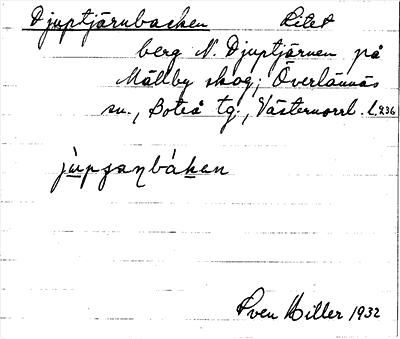 Djuptjärnbacken Litet
berg N. Djuptjärnen på
Mällby skog; Överlännäs
sn., Boteå tg., Västernorrl. l. 436
Sven Hiller 1932